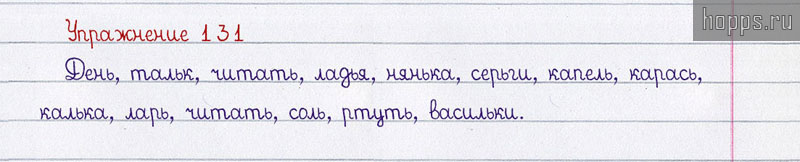 hopps.ru
Упражнение 131
День, тальк, читать, ладья, нянька, серьги, капель, карась,
калька, ларь, читать, соль, ртуть, васильки.